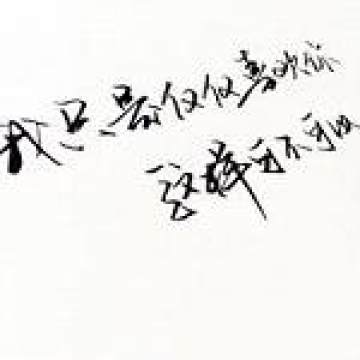 我只是仅仅喜欢你
这样可不可以